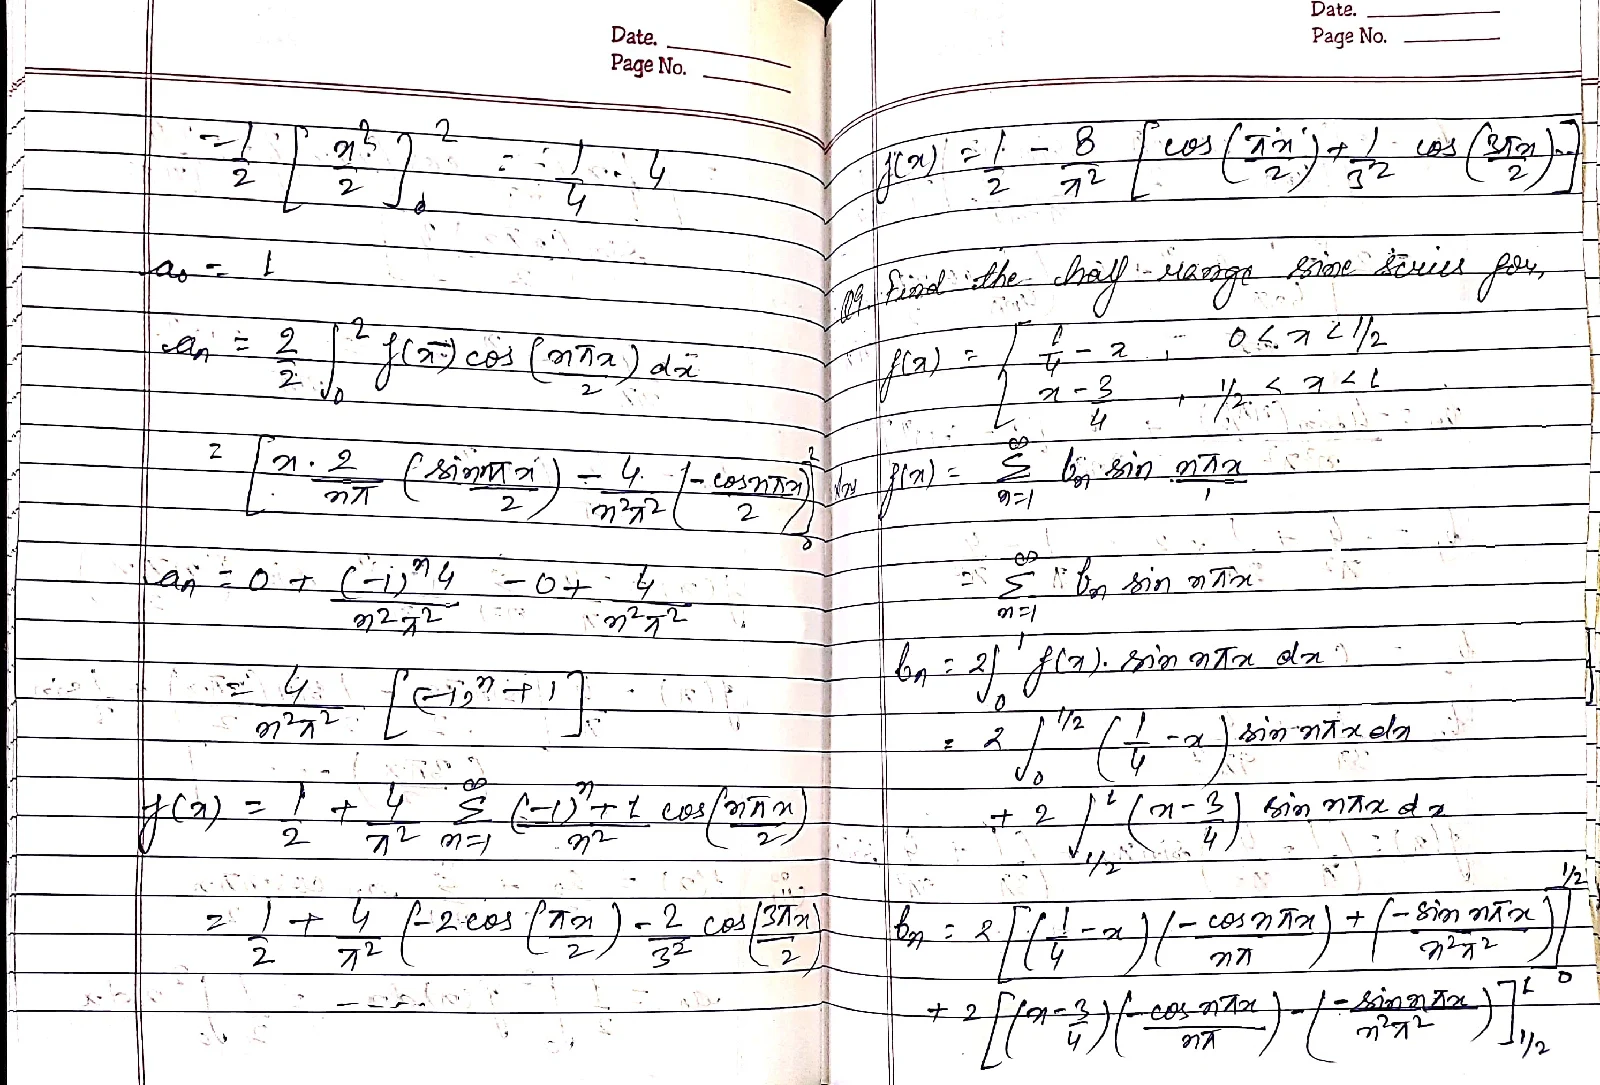 Date.
Page No.
= 1/2 [x²/2]₀² = 1/4 · 4
a₀ = 1
aₙ = 2/2 ∫₀² f(x) cos (nπx/2) dx
= [x · 2/nπ (sin nπx/2) - 4/n²π² (- cos nπx/2)]₀²
aₙ = 0 + (-1)ⁿ4/n²π² - 0 + 4/n²π²
= 4/n²π² [(-1)ⁿ + 1]
f(x) = 1/2 + 4/π² Σₙ₌₁^∞ (-1)ⁿ+1/n² cos(nπx/2)
= 1/2 + 4/π² (-2 cos (πx/2) - 2/3² cos (3πx/2)
- - - - -
Date.
Page No.
f(x) = 1/2 - 8/π² [cos (πx/2) + 1/3² cos (3πx/2)...]
Q9. Find the half range sine series for,
f(x) = { 1/4 - x , 0 < x < 1/2
x - 3/4 , 1/2 < x < 1
f(x) = Σₙ₌₁^∞ bₙ sin nπx/1
= Σₙ₌₁^∞ bₙ sin nπx
bₙ = 2∫₀¹ f(x). sin nπx dx
= 2 ∫₀^1/2 (1/4 - x) sin nπx dx
+ 2 ∫_1/2^1 (x - 3/4) sin nπx dx
bₙ = 2 [(1/4 - x) (- cos nπx/nπ) + (- sin nπx/n²π²)]₀^1/2
+ 2 [(x - 3/4) (- cos nπx/nπ) - (- sin nπx/n²π²)]_1/2^1